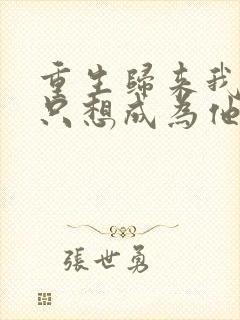 重生歸来我
只想成為他
張世勇